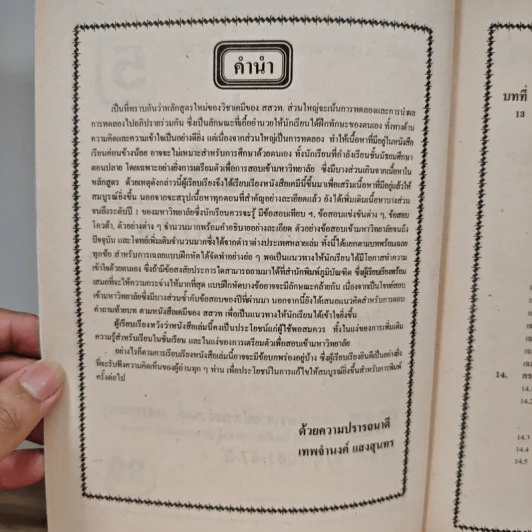 คำนำ
เป็นที่ทราบกันว่าหลักสูตรใหม่ของวิชาเคมีของ สสวท. ส่วนใหญ่จะเน้นการทดลองและการนำผล
การทดลองไปอภิปรายร่วมกัน ซึ่งเป็นลักษณะที่เอื้ออำนวยให้นักเรียนได้ฝึกทักษะของตนเอง ทั้งทางด้าน
ความคิดและความเข้าใจเป็นอย่างดียิ่ง แต่เนื่องจากส่วนใหญ่เป็นการทดลอง ทำให้เนื้อหาที่มีอยู่ในหนังสือ
เรียนค่อนข้างน้อย อาจจะไม่เหมาะสำหรับการศึกษาด้วยตนเอง ทั้งนักเรียนที่กำลังเรียนชั้นมัธยมศึกษา
ตอนปลาย โดยเฉพาะอย่างยิ่งการเตรียมตัวเพื่อการสอบเข้ามหาวิทยาลัย ซึ่งมีบางส่วนเกินจากเนื้อหาใน
หลักสูตร ด้วยเหตุดังกล่าวนี้ผู้เรียบเรียงจึงได้เรียบเรียงหนังสือเคมีนี้ขึ้นมาเพื่อเสริมเนื้อหาที่มีอยู่แล้วให้
สมบูรณ์ยิ่งขึ้น นอกจากจะสรุปเนื้อหาทุกตอนที่สำคัญอย่างละเอียดแล้ว ยังได้เพิ่มเติมเนื้อหาบางส่วน
จนถึงระดับปี 1 ของมหาวิทยาลัยซึ่งนักเรียนควรจะรู้ มีข้อสอบเทียบ ฯ, ข้อสอบแข่งขันต่าง ๆ, ข้อสอบ
โควต้า, ตัวอย่างต่าง ๆ จำนวนมากพร้อมคำอธิบายอย่างละเอียด ตัวอย่างข้อสอบเข้ามหาวิทยาลัยจนถึง
ปัจจุบัน และโจทย์เพิ่มเติมจำนวนมากซึ่งได้จากตำราต่างประเทศหลายเล่ม ทั้งนี้ได้แยกตามบทพร้อมเฉลย
ทุกข้อ สำหรับการเฉลยแบบฝึกหัดได้จัดทำอย่างย่อ ๆ พอเป็นแนวทางให้นักเรียนได้มีโอกาสทำความ
เข้าใจด้วยตนเอง ซึ่งถ้ามีข้อสงสัยประการใดสามารถถามมาได้ที่สำนักพิมพ์ภูมิบัณฑิต ซึ่งผู้เรียบเรียงพร้อม
เสมอที่จะให้ความกระจ่างให้มากที่สุด แบบฝึกหัดบางข้ออาจจะมีลักษณะคล้ายกัน เนื่องจากเป็นโจทย์สอบ
เข้ามหาวิทยาลัยซึ่งมีบางส่วนซ้ำกับข้อสอบของปีที่ผ่านมา นอกจากนี้ยังได้เสนอแนวคิดสำหรับการตอบ
คำถามท้ายบท ตามหนังสือเคมีของ สสวท เพื่อเป็นแนวทางให้นักเรียนได้เข้าใจยิ่งขึ้น
ผู้เรียบเรียงหวังว่าหนังสือเล่มนี้คงเป็นประโยชน์แก่ผู้ใช้พอสมควร ทั้งในแง่ของการเพิ่มเติม
ความรู้สำหรับเรียนในชั้นเรียน และในแง่ของการเตรียมตัวสอบเข้ามหาวิทยาลัย
อย่างไรก็ตามการเรียบเรียงหนังสือเล่มนี้อาจจะมีข้อบกพร่องอยู่บ้าง ซึ่งผู้เรียบเรียงยินดีเป็นอย่างยิ่ง
ที่จะรับฟังความคิดเห็นของผู้อ่านทุก ๆ ท่าน เพื่อประโยชน์ในการแก้ไขให้สมบูรณ์ยิ่งขึ้นสำหรับการพิมพ์
ครั้งต่อไป
ด้วยความปรารถนาดี
เทพจำนงค์ แสงสุนทร
บทที่
13
14.
14.1
14.2
14.3
14.4
14.5